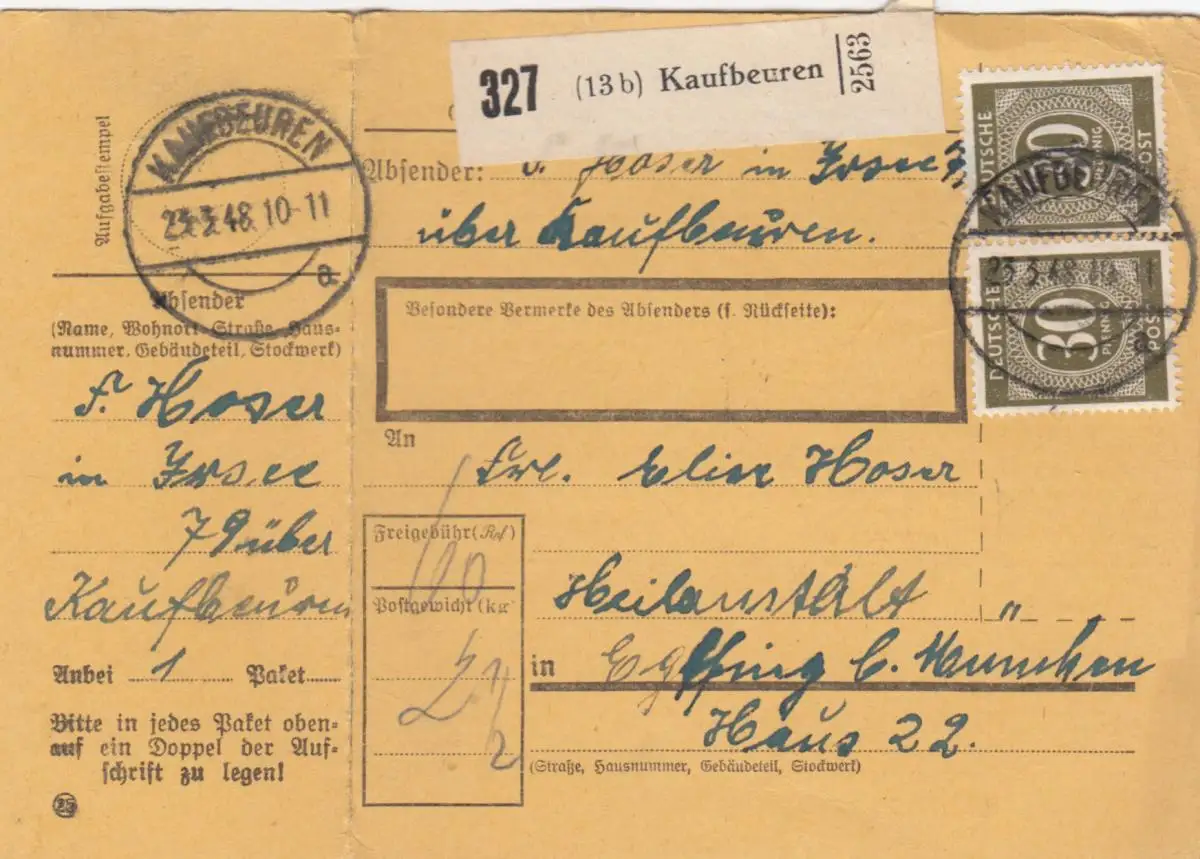 327 (13b) Kaufbeuren 2563
Aufgabestempel
KAUFBEUREN
23.3.48.10-11
a
Absender: F. Hoser in Irsee 79
über Kaufbeuren.
DEUTSCHE POST
30 PFENNIG
DEUTSCHE POST
30 PFENNIG
KAUFBEUREN
23.3.48.10-11
a
Absender
(Name, Wohnort, Straße, Haus-
nummer, Gebäudeteil, Stockwerk)
F. Hoser
in Irsee
79 über
Kaufbeuren
Anbei 1 Paket
Bitte in jedes Paket oben-
auf ein Doppel der Auf-
schrift zu legen!
Besondere Vermerke des Absenders (s. Rückseite):
An Frl. Elise Hoser
Freigebühr (Rpf)
60
Postgewicht (kg)
2 1/2
Heilanstalt „
in Eglfing b. München
Haus 22.
(Straße, Hausnummer, Gebäudeteil, Stockwerk)